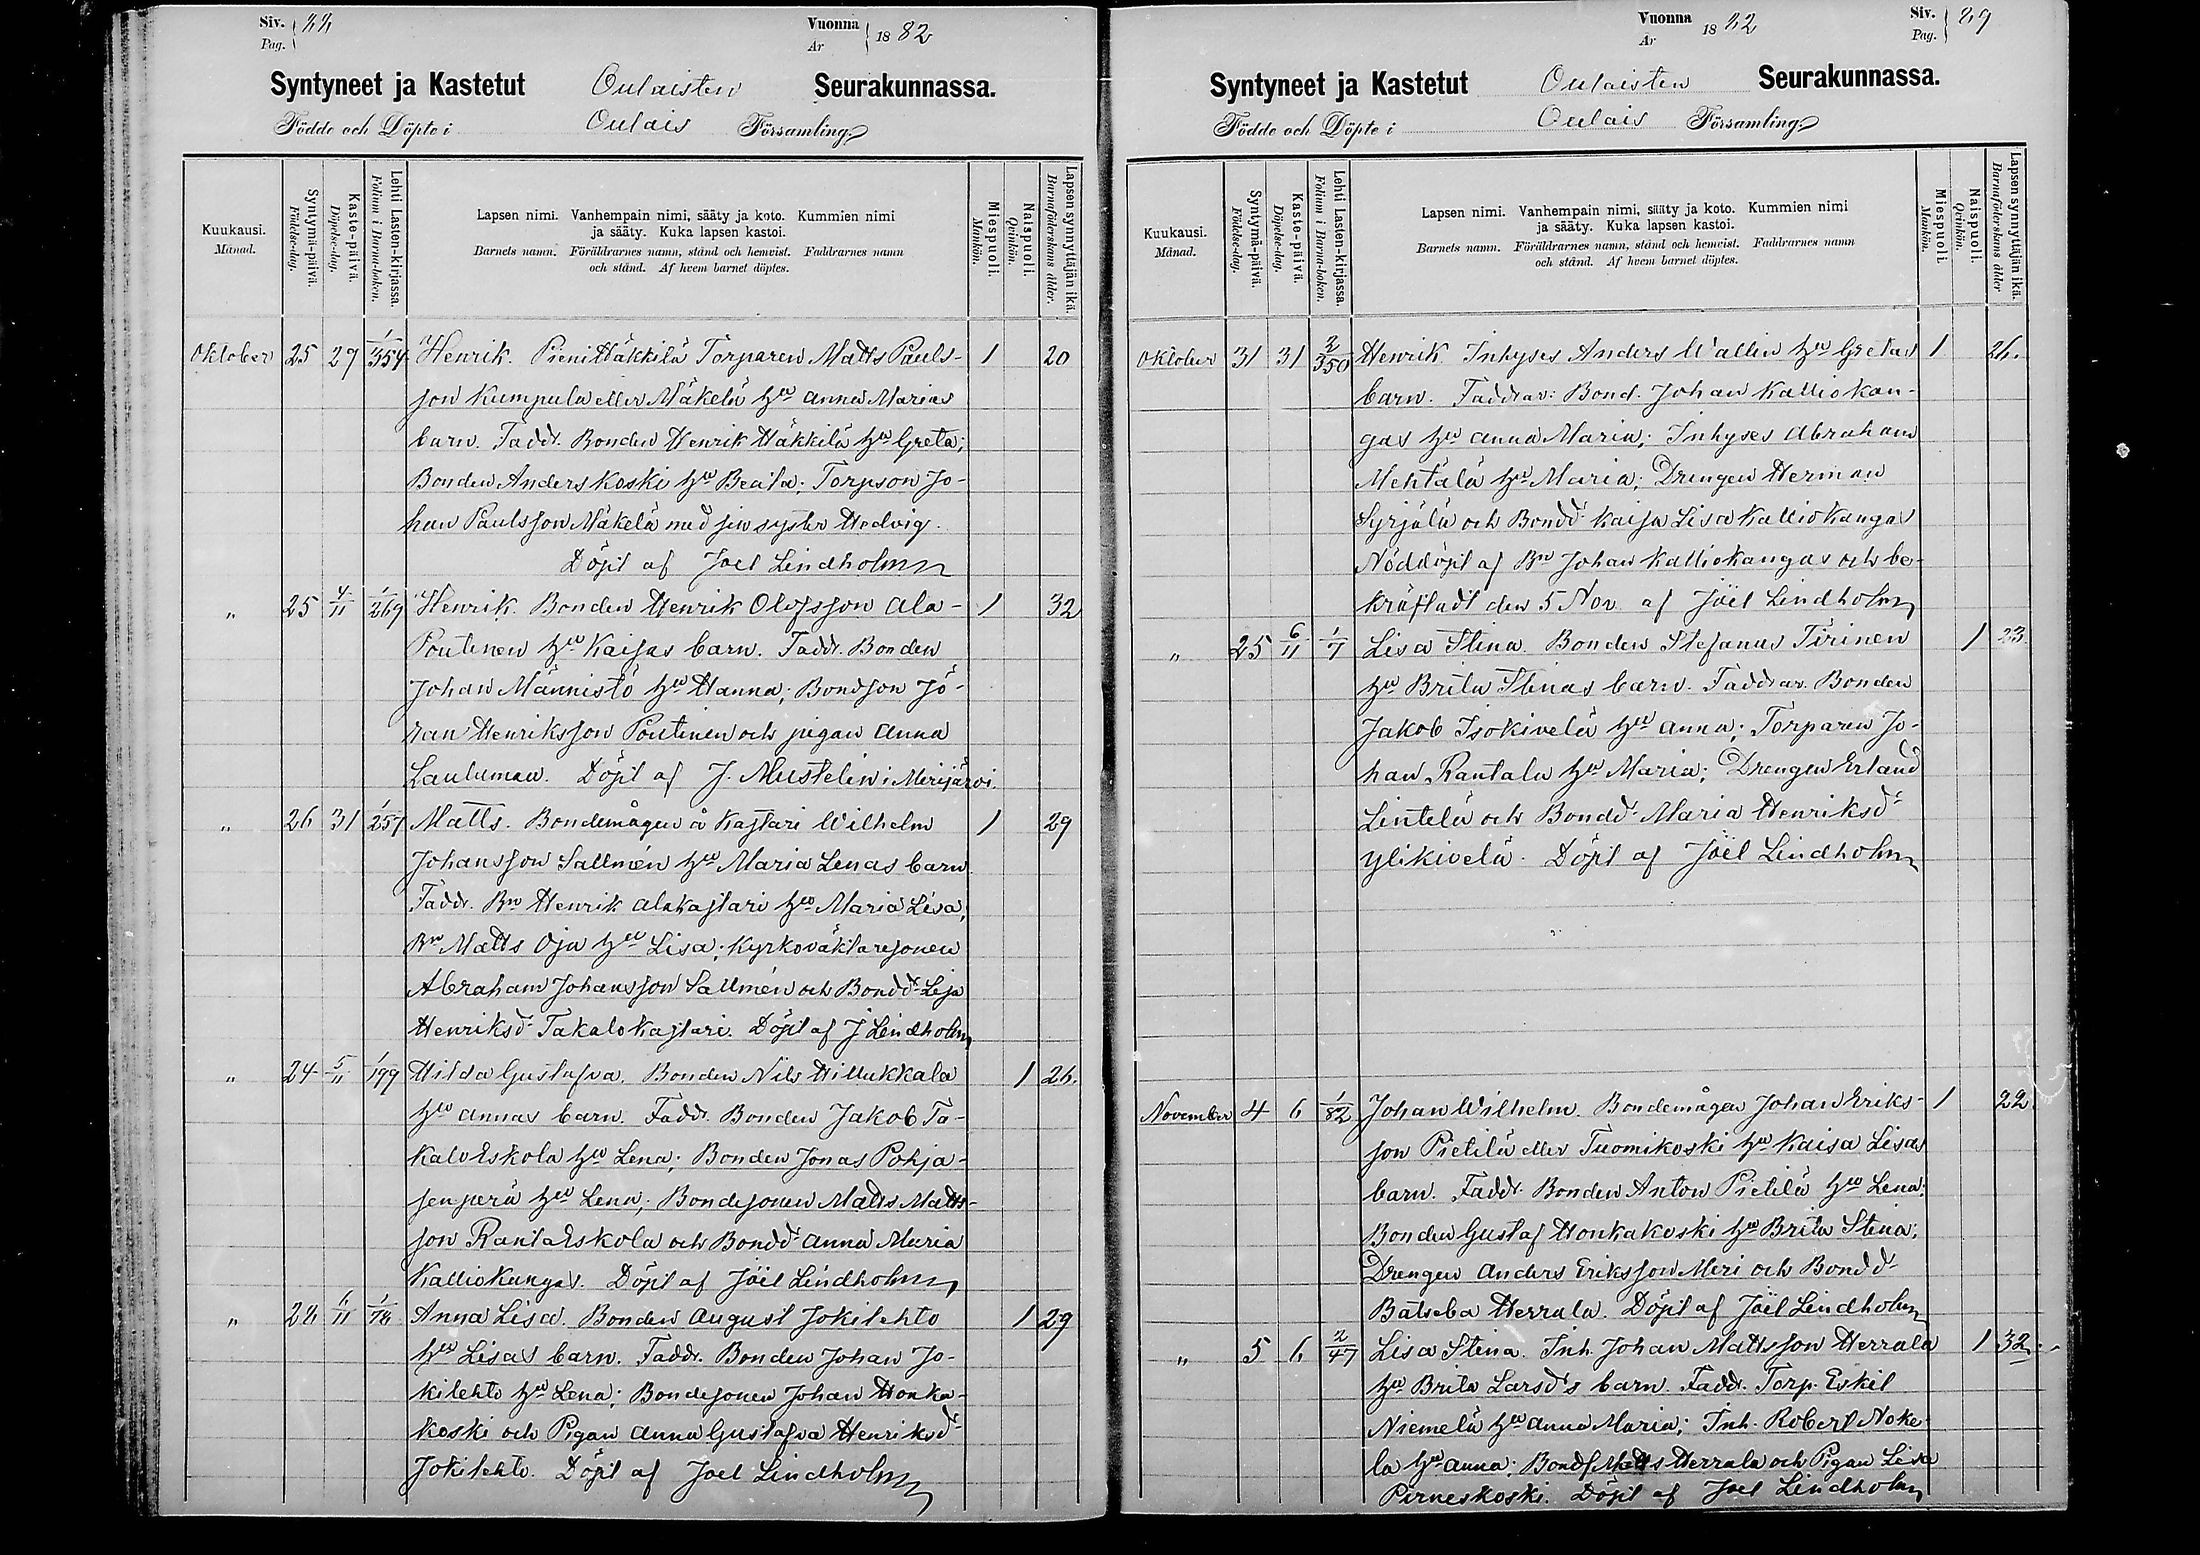 Siv. 22 Vuonna
Pag. År 1882
Syntyneet ja Kastetut Oulaisten Seurakunnassa.
Födde och Döpte i Oulais Församling
Kuukausi. Månad.
Syntymä-päivä. Födelse-dag.
Kaste-päivä. Döpelse-dag.
Lehti Lasten-kirjassa. Folium i Barna-boken.
Lapsen nimi. Vanhempain nimi, sääty ja koto. Kummien nimi
ja sääty. Kuka lapsen kastoi.
Barnets namn. Föräldrarnes namn, stånd och hemvist. Faddrarnes namn
och stånd. Af hvem barnet döptes.
Miespuoli. Mankön.
Naispuoli. Qvinkön.
Lapsen synnyttäjän ikä. Barnaföderskans ålder.
Oktober 25 29 1/354 Henrik. Pieni Häkkilä Torparen Matts Pauls- 1 20
son Kumpula eller Mäkelä hu Anna Marias
barn. Faddr. Bonden Henrik Häkkilä hu Greta;
Bonden Anders Koski hu Beata; Torpson Jo-
han Paulsson Mäkelä med sin syster Hedvig.
Döpt af Joel Lindholm
" 25 4/11 1/269 Henrik. Bonden Henrik Olofsson Ala- 1 32
Poutinen hu Kaisas barn. Faddr. Bonden
Johan Männistö hu Hanna; Bondson Jö-
ran Henriksson Poutinen och pigan Anna
Lauluman. Döpt af J. Mustelin i Merijärvi.
" 26 31 1/257 Matts. Bondemågen å Kastari Wilhelm 1 29
Johansson Sallmén hu Maria Lenas barn
Faddr. Bn Henrik Alakastari hu Maria Lisa;
Bn Matts Oja hu Lisa; Kyrkoväktaresonen
Abraham Johansson Sallmén och Bondd. Lisa
Henriksd. Takalokastari. Döpt af J Lindholm
" 24 5/11 1/199 Hilda Gustafva. Bonden Nils Hillukkala 1 26.
hu Annas barn. Faddr. Bonden Jakob Ta-
kalo Eskola hu Lena; Bonden Jonas Pohja-
senperä hu Lena; Bondesonen Matts Matts-
son Ranta Eskola och Bondd. Anna Maria
Kalliokangas. Döpt af Joël Lindholm
" 28 6/11 Anna Lisa. Bonden August Jokilehto 1 29
hu Lisas barn. Faddr. Bonden Johan Jo-
kilehto hu Lena; Bondesonen Johan Honka-
koski och Pigan Anna Gustafva Henriksd
Jokilehto. Döpt af Joel Lindholm
Vuonna Siv. 29
År 1882 Pag.
Syntyneet ja Kastetut Oulaisten Seurakunnassa.
Födde och Döpte i Oulais Församling
Kuukausi. Månad.
Syntymä-päivä. Födelse-dag.
Kaste-päivä. Döpelse-dag.
Lehti Lasten-kirjassa. Folium i Barna-boken.
Lapsen nimi. Vanhempain nimi, sääty ja koto. Kummien nimi
ja sääty. Kuka lapsen kastoi.
Barnets namn. Föräldrarnes namn, stånd och hemvist. Faddrarnes namn
och stånd. Af hvem barnet döptes.
Miespuoli. Mankön.
Naispuoli. Qvinkön.
Lapsen synnyttäjän ikä. Barnaföderskans ålder
Oktober 31 31 2/350 Henrik. Inhyses Anders Wallin hu Gretas 1 26.
barn. Faddrar: Bond. Johan Kalliokan-
gas hu Anna Maria; Inhyses Abraham
Mehtälä hu Maria; Drengen Herman
Syrjälä och Bondd. Kaisa Lisa Kalliokangas
Nöddöpt af Bn Johan Kalliokangas och be-
kräftadt den 5 Nov. af Joël Lindholm
" 25 6/11 1/7 Lisa Stina. Bonden Stefanus Tirinen 1 23
hu Brita Stinas barn. Faddrar. Bonden
Jakob Isokivelä hu Anna; Torparen Jo-
han Rantala hu Maria; Drengen Erland
Lintelä och Bondd. Maria Henriksd.
Ylikivelä. Döpt af Joël Lindholm
November 4 6 1/82 Johan Wilhelm. Bondemågen Johan Eriks- 1 22
son Pietilä eller Tuomikoski hu Kaisa Lisas
barn. Faddr. Bonden Anton Pietilä hu Lena;
Bonden Gustaf Honkakoski hu Brita Stina;
Drengen Anders Eriksson Meri och Bondd.
Batseba Herrala. Döpt af Joël Lindholm
" 5 6 2/47 Lisa Stina. Inh. Johan Mattsson Herrala 1 32
hu Brita Larsd's barn. Faddr. Torp. Eskil
Niemelä hu Anna Maria; Inh. Robert Noke-
la hu Anna; Bonds Matts Herrala och Pigan Lisa
Pirneskoski. Döpt af Joel Lindholm